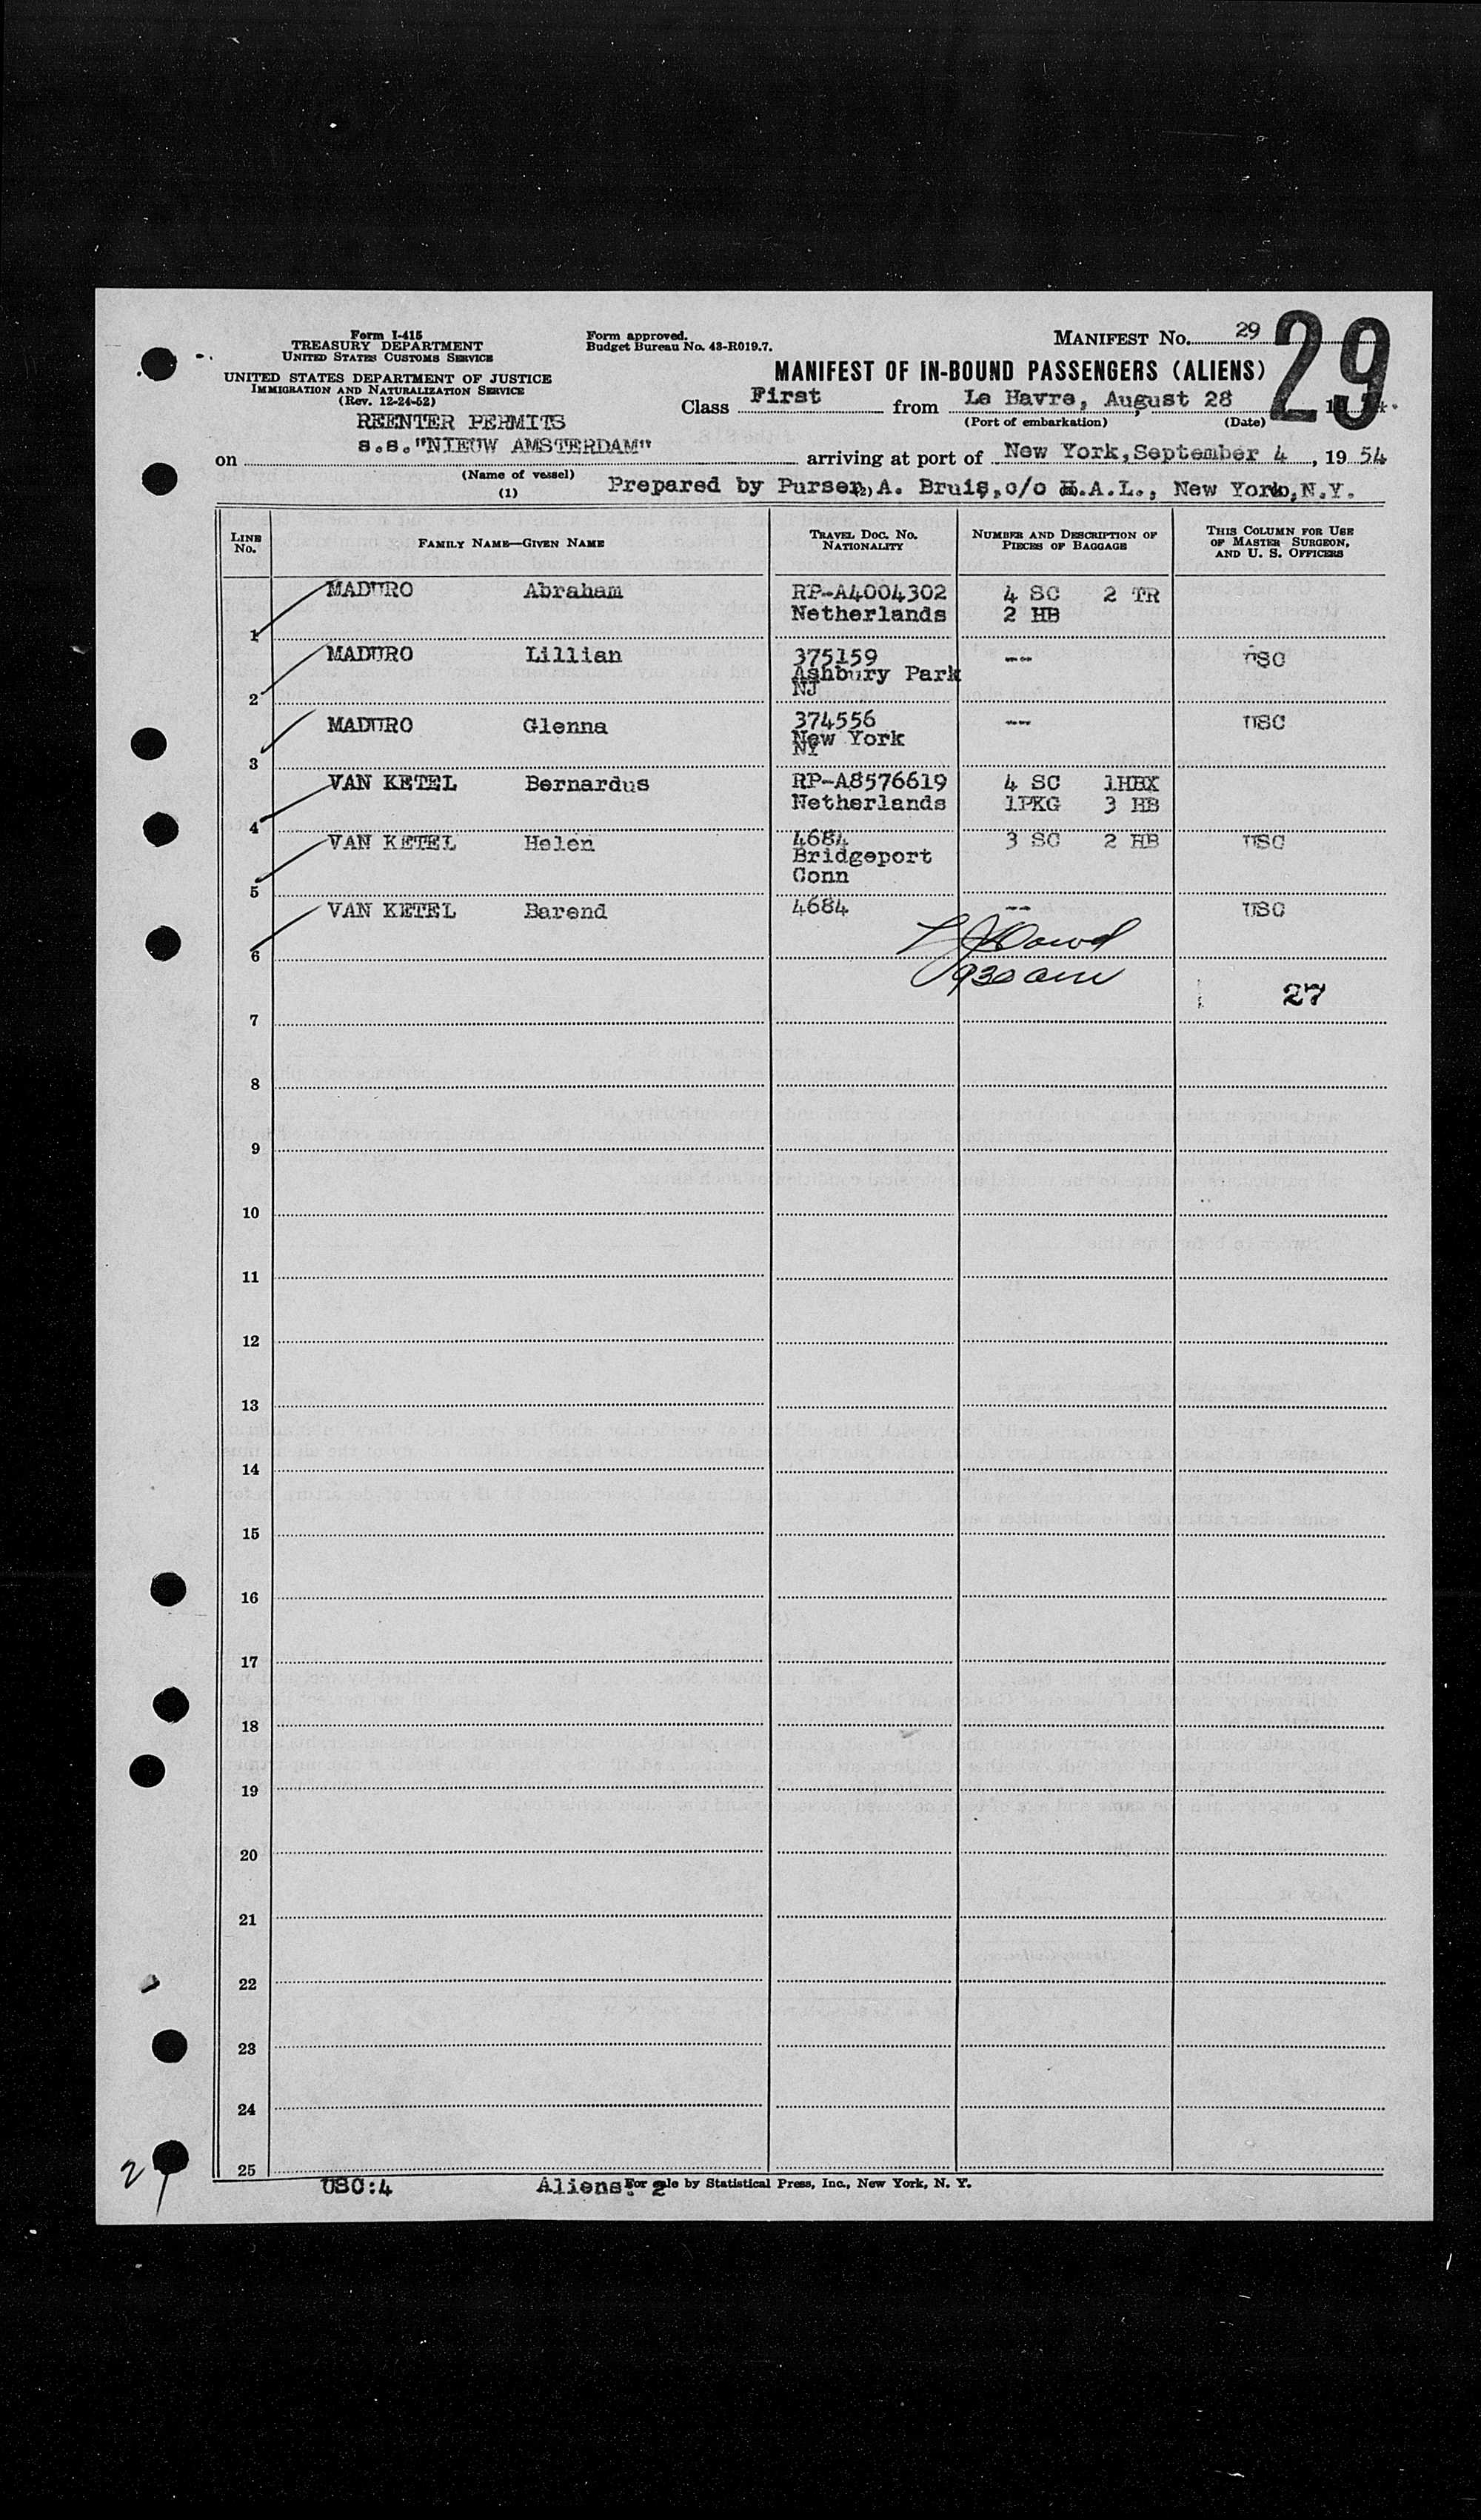 Form I-415
TREASURY DEPARTMENT
UNITED STATES CUSTOMS SERVICE
UNITED STATES DEPARTMENT OF JUSTICE
IMMIGRATION AND NATURALIZATION SERVICE
(Rev. 12-24-52)
Form approved.
Budget Bureau No. 43-R019.7.
MANIFEST No. 29
29
MANIFEST OF IN-BOUND PASSENGERS (ALIENS)
Class First from Le Havre, August 28
(Port of embarkation) (Date)
REENTER PERMITS
on s.s."NIEUW AMSTERDAM" arriving at port of New York, September 4, 1954
(Name of vessel)
(1) Prepared by Purser A. Bruis, c/o H.A.L., New York, N.Y.
LINE No. FAMILY NAME—GIVEN NAME TRAVEL DOC. NO. NATIONALITY NUMBER AND DESCRIPTION OF PIECES OF BAGGAGE THIS COLUMN FOR USE OF MASTER SURGEON, AND U. S. OFFICERS
MADURO Abraham RP-A4004302 4 SC 2 TR
1 Netherlands 2 HB
MADURO Lillian 375159 --- USC
Ashbury Park
2 NJ
MADURO Glenna 374556 --- USC
New York
3 NY
VAN KETEL Bernardus RP-A8576619 4 SC 1HBX
4 Netherlands 1PKG 3 HB
VAN KETEL Helen 4684 3 SC 2 HB USC
Bridgeport
5 Conn
VAN KETEL Barend 4684 --- USC
6
930 am
27
7
8
9
10
11
12
13
14
15
16
17
18
19
20
21
22
23
24
25
USC:4 Aliens: 2 For sale by Statistical Press, Inc., New York, N. Y.